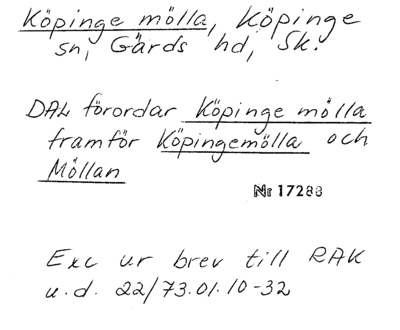 Köpinge mölla, Köpinge
sn, Gärds hd, Sk.
DAL förordar Köpinge mölla
framför Köpingemölla och
Möllan
Nr 17288
Exc ur brev till RAK
u.d. 22/73.01.10-32